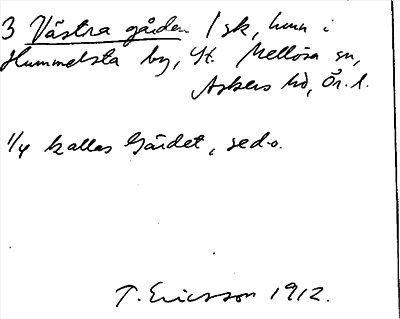 3 Västra gården 1 sk, hmn i
Hummelsta by, St. Mellösa sn,
Askers hd, Ör. l.
1/4 kallas Gärdet, se d.o.
T. Ericsson 1912.